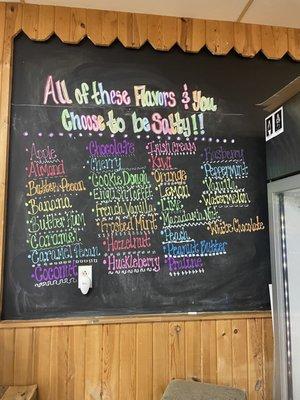 All of these Flavors & You
Choose to be Salty!!
Apple
Almond
Butter Pecan
Banana
Butterfinger
Caramel
Caramel Pecan
Coconut
Chocolate
Cherry
Cookie Dough
English Toffee
French Vanilla
Frosted Mint
Hazelnut
Huckleberry
Irish Cream
Kiwi
Orange
Lemon
Lime
Macadamia Nut
Peach
Peanut Butter
Praline
Raspberry
Peppermint
Vanilla
Watermelon
White Chocolate